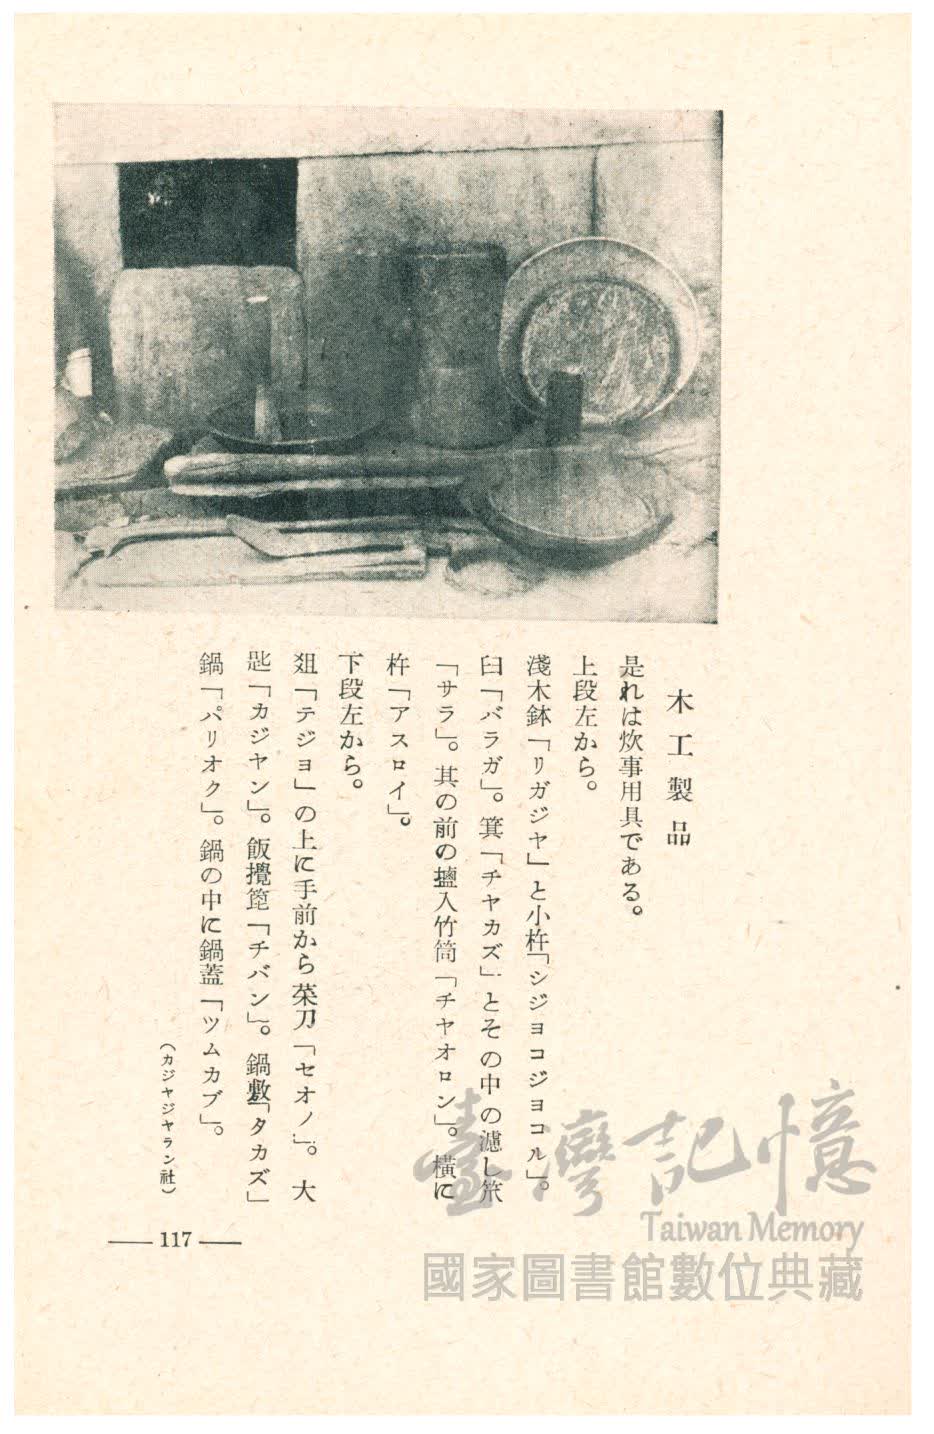 木工製品
是れは炊事用具である。
上段左から。
淺木鉢「リガジヤ」と小杵「シジヨコジヨコル」。
臼「バラガ」。箕「チヤカズ」とその中の濾し笊
「サラ」。其の前の鹽入竹筒「チヤオロン」。橫に
杵「アスロイ」。
下段左から。
爼「テジヨ」の上に手前から菜刀「セオノ」。大
匙「カジヤン」。飯攪箆「チバン」。鍋敷「タカズ」
鍋「パリオク」。鍋の中に鍋蓋「ツムカブ」。
（カジヤジヤラン社）
117
臺灣記憶
Taiwan Memory
國家圖書館數位典藏